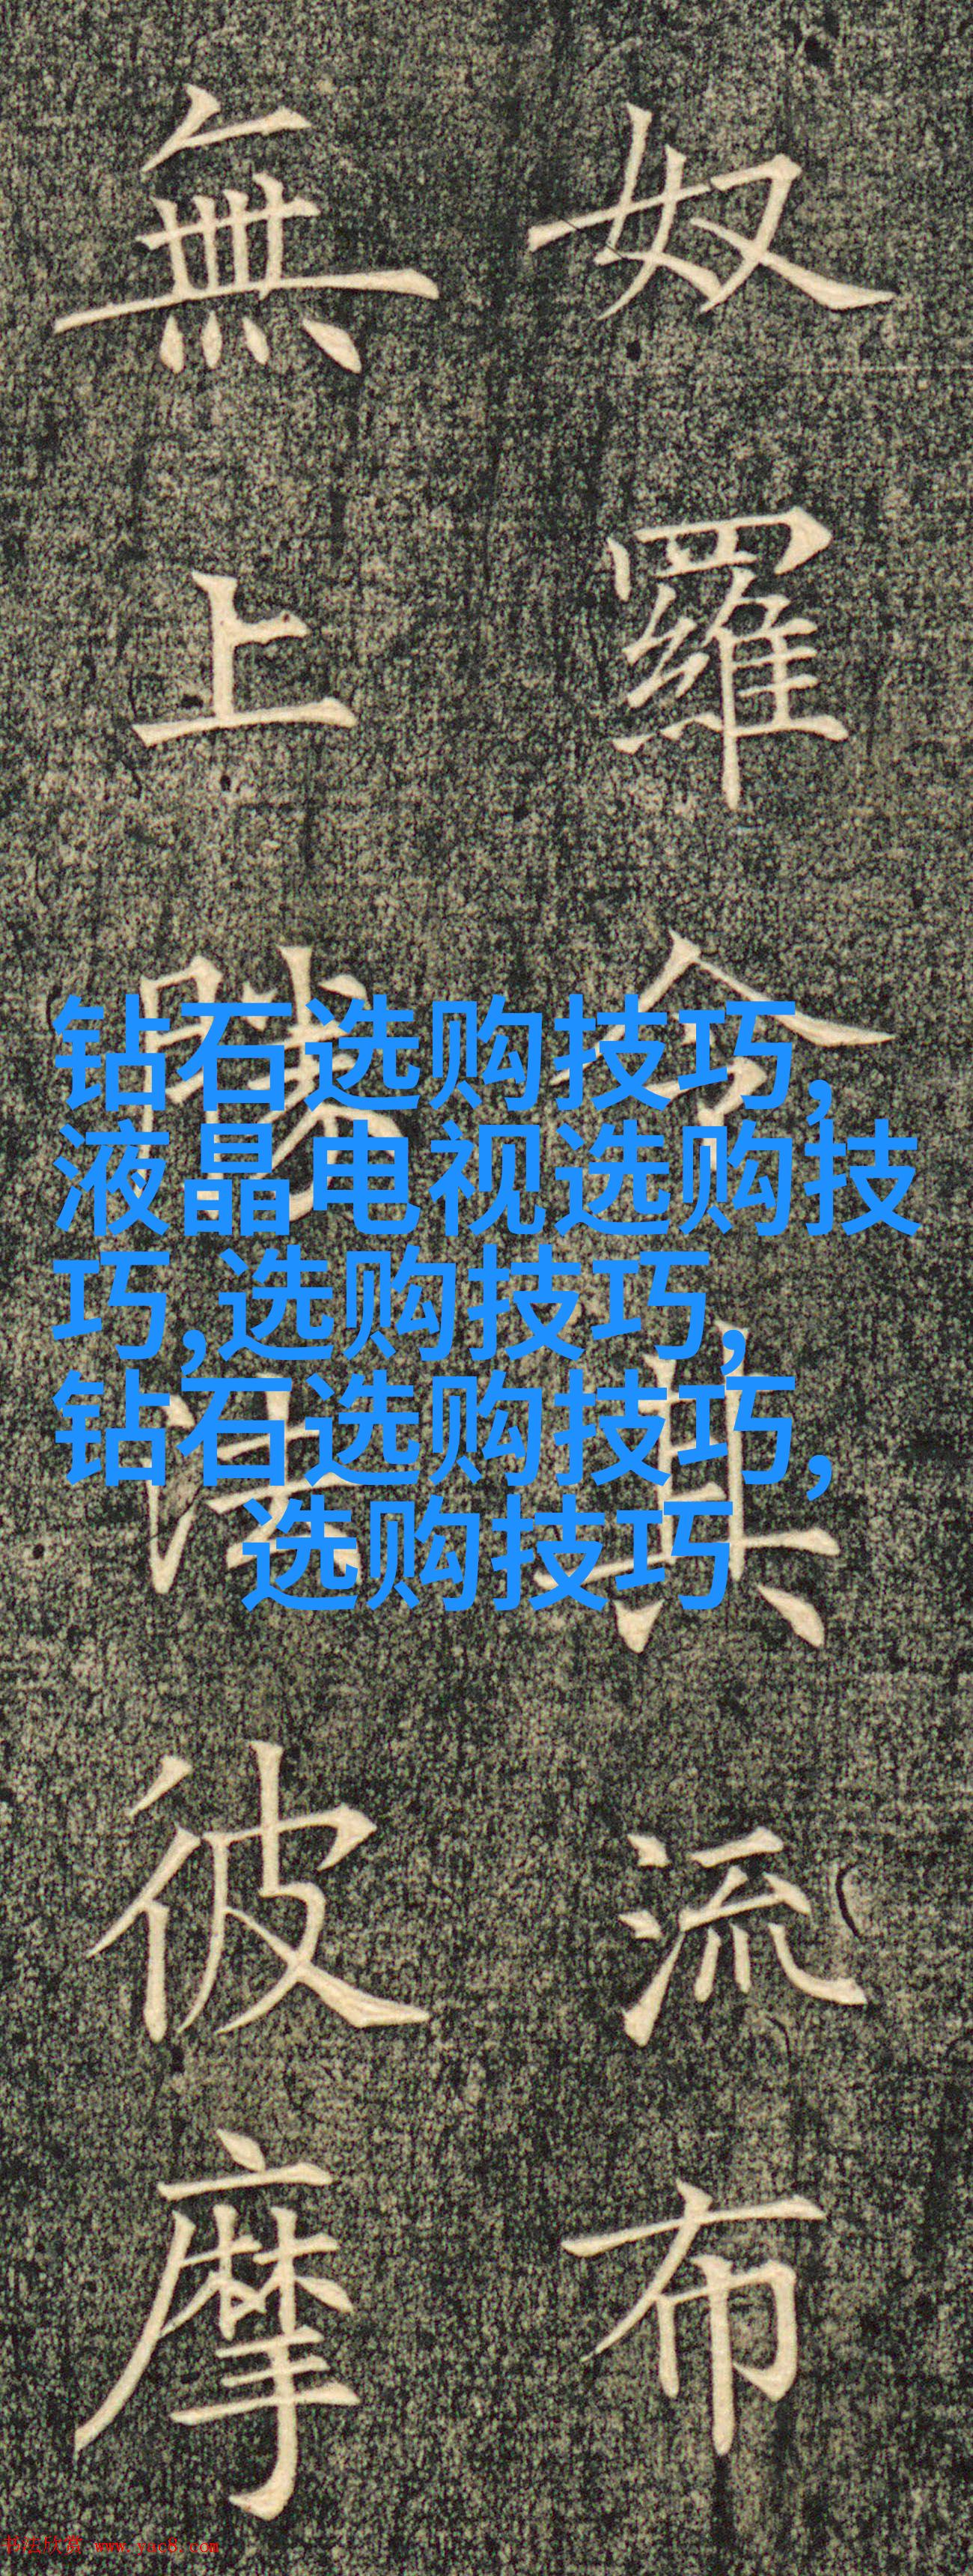 奴羅令其流布
無上勝法彼摩
钻石选购技巧,
液晶电视选购技
巧,选购技巧,
钻石选购技巧,
选购技巧
书法欣赏 www.yac8.com